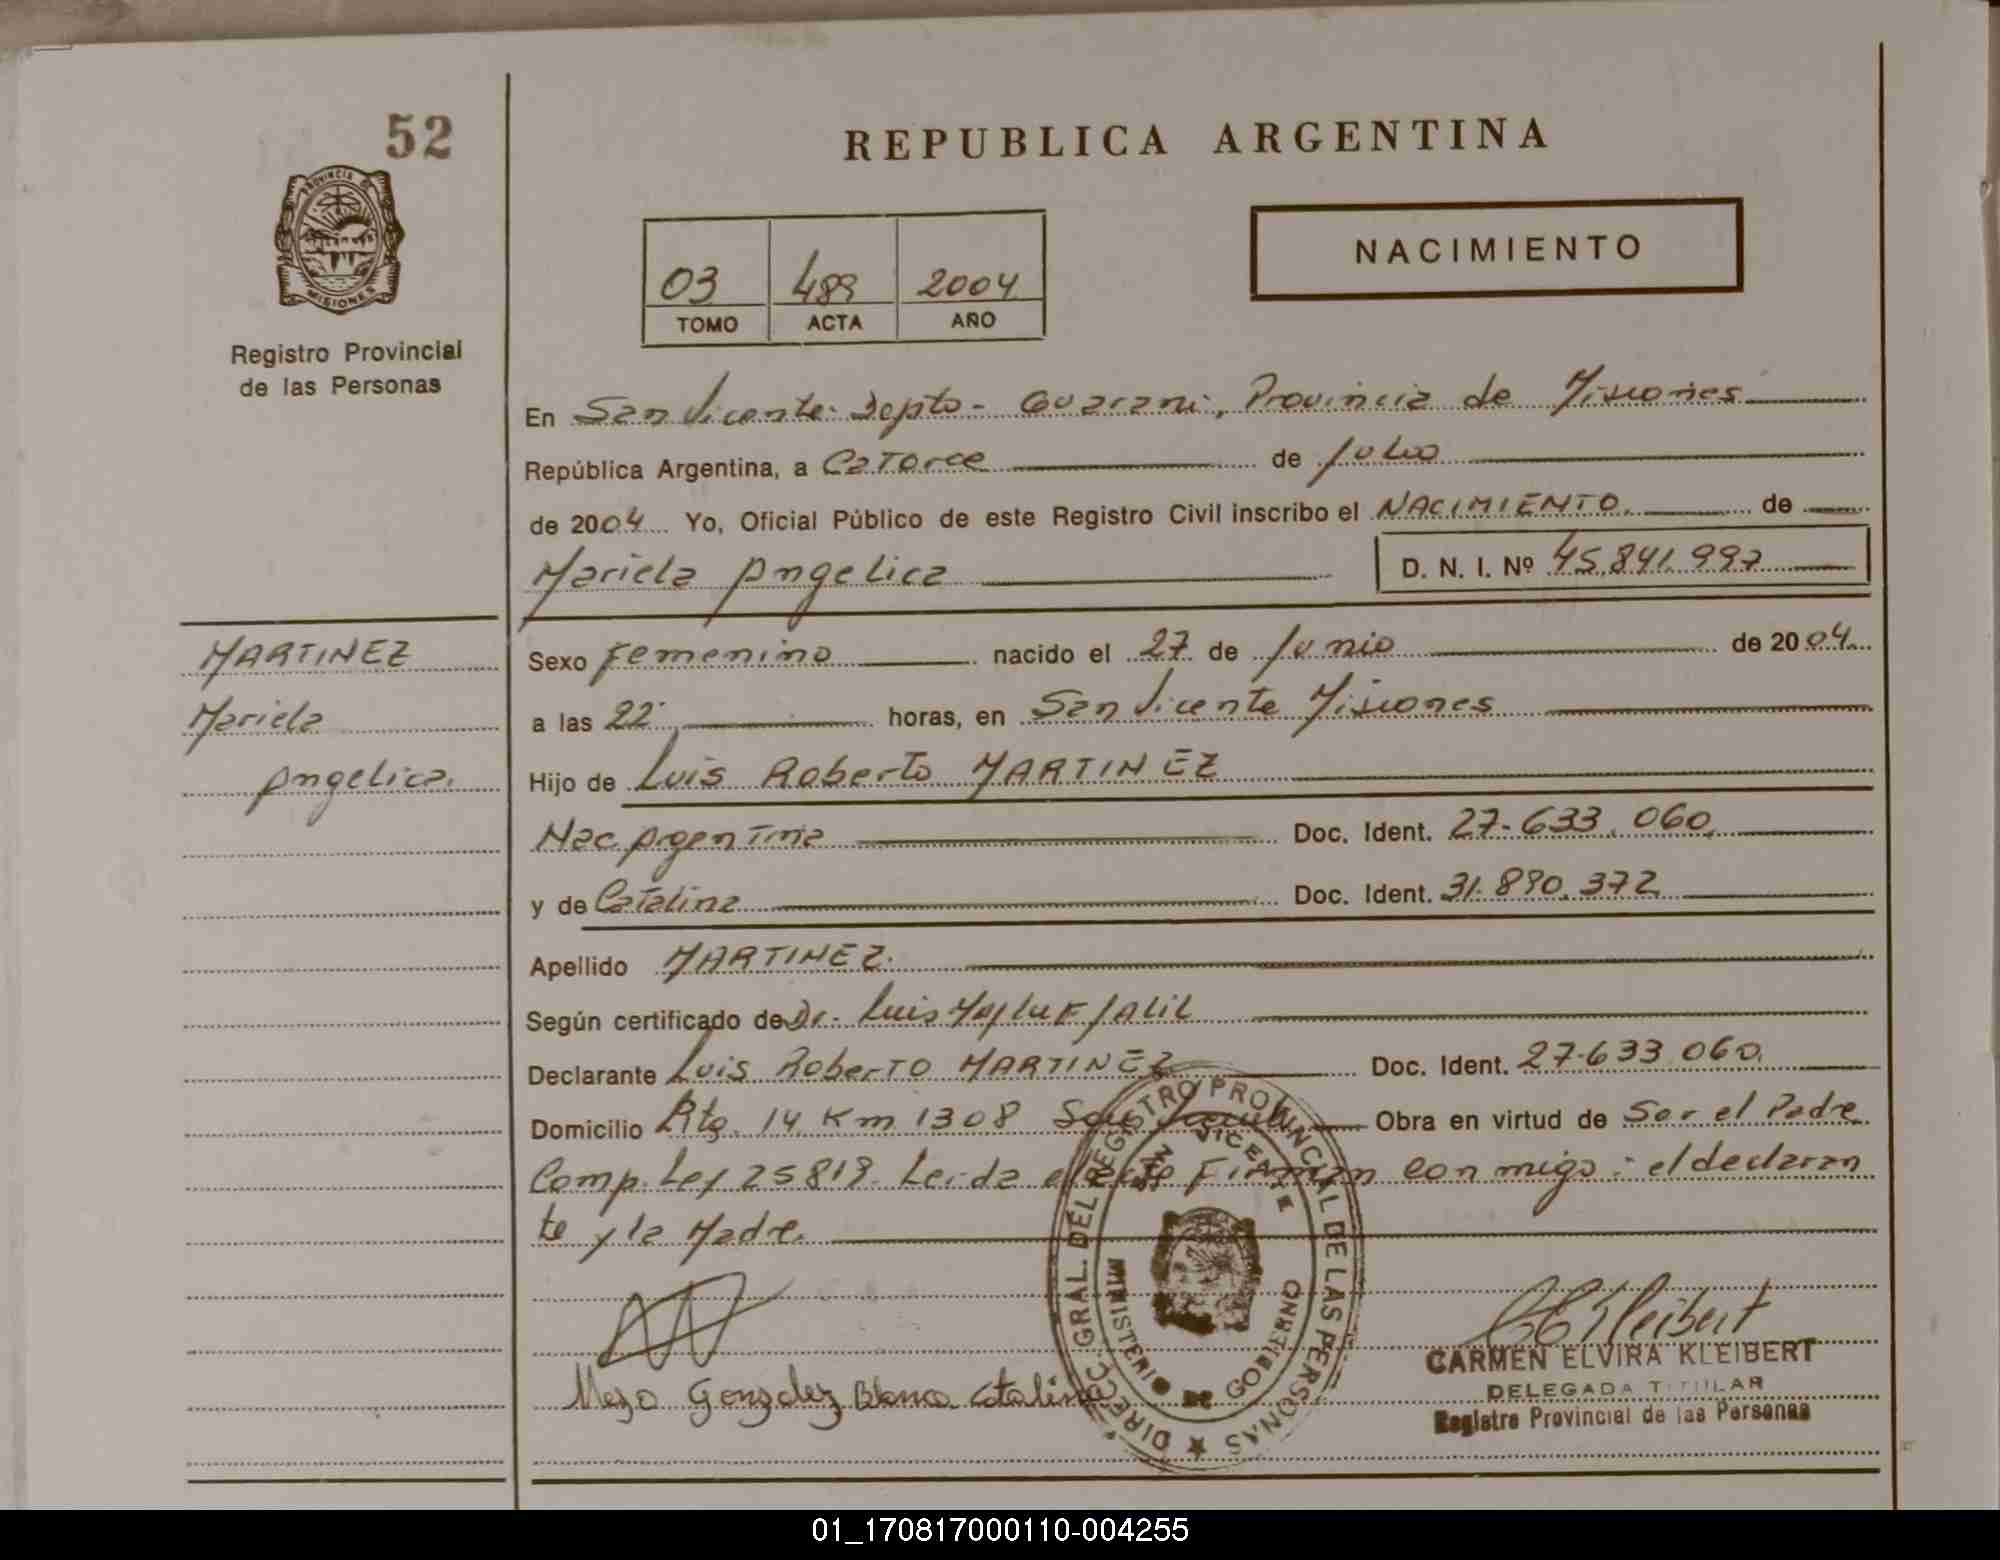 52
REPUBLICA ARGENTINA
PROVINCIA DE
MISIONES
Registro Provincial
de las Personas
NACIMIENTO
03 489 2004
TOMO ACTA AÑO
En San Vicente. Depto- Guarani, Provincia de Misiones
República Argentina, a Catorce de Julio
de 2004 Yo, Oficial Público de este Registro Civil inscribo el NACIMIENTO. de
Mariela Angelica D. N. I. Nº 45.841.997
MARTINEZ
Mariela
Angelica.
Sexo Femenino nacido el 27 de Junio de 2004
a las 22 horas, en San Vicente Misiones
Hijo de Luis Roberto MARTINEZ
Nac Argentina Doc. Ident. 27-633.060.
y de Catalina Doc. Ident. 31.890.372
Apellido MARTINEZ.
Según certificado de Dr. Luis JALIL
Declarante Luis Roberto MARTINEZ Doc. Ident. 27.633.060.
Domicilio Rta. 14 Km 1308 Obra en virtud de Ser el Padre
Comp. Ley 25819. Leida el acta Firman con migo: el declaran
te y la Madre.
DIRECC. GRAL. DEL REGISTRO PROVINCIAL DE LAS PERSONAS
SAN VICENTE
MINISTERIO DE GOBIERNO
Gonzalez Blanca Catalina
CKleibert
CARMEN ELVIRA KLEIBERT
DELEGADA TITULAR
Registro Provincial de las Personas
01_170817000110-004255